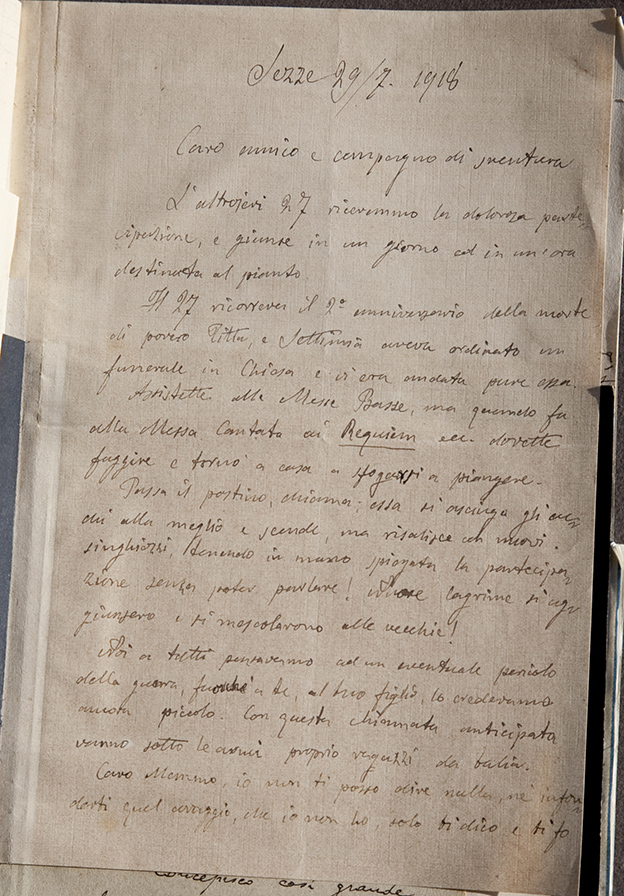 Sezze 29/7. 1918
Caro amico e compagno di sventura
L'altrojeri 27 ricevemmo la dolorosa parte,
cipazione, e giunse in un giorno ed in un'ora
destinata al pianto.
Il 27 ricorreva il 2º anniversario della morte
di povero Titta, e Settimia aveva ordinato un
funerale in Chiesa e vi era andata pure essa.
Assistette alle Messe Basse, ma quando fu
alla Messa Cantata ai Requiem ecc. dovette
fuggire e tornò a casa a sfogarsi a piangere.
Passa il postino, chiama; essa si asciuga gli oc,
chi alla meglio e scende, ma risalisce con nuovi
singhiozzi, tenendo in mano spiegata la partecipa,
zione senza poter parlare! Nuove lagrime si ag,
giunsero e si mescolarono alle vecchie!
Noi a tutti pensavamo ad un eventuale pericolo
della guerra, fuorché a te, al tuo figlio, lo credevamo
ancora piccolo. Con questa chiamata anticipata
vanno sotto le armi proprio ragazzi da balia.
Caro Memmo, io non ti posso dire nulla, nè infon,
darti quel coraggio, che io non ho, solo ti dico e ti fo
concepisco così grande